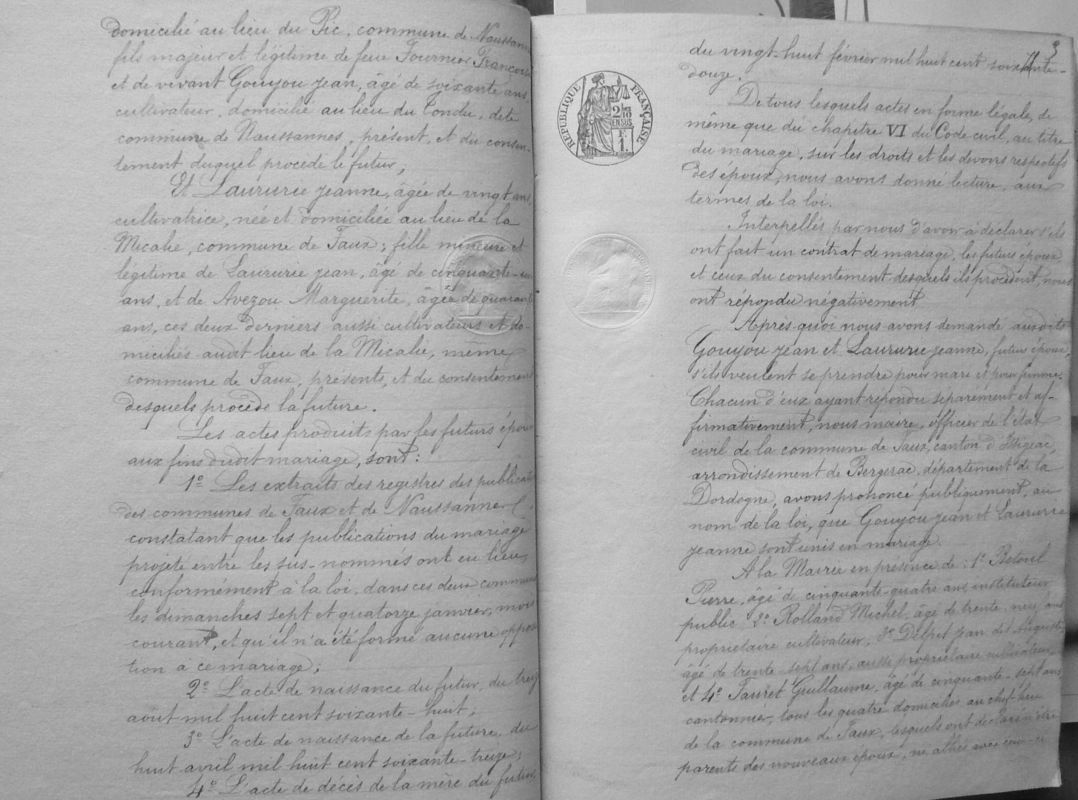 domicilié au lieu du Pic, commune de Naussannes
fils majeur et légitime de feue Fournier Françoise
et de vivant Gouyou jean, âgé de soixante ans
cultivateur, domicilié au lieu du dite
commune de Naussannes, présent, et du consen-
tement duquel procède le futur,
Et Laururie jeanne, âgée de vingt ans
cultivatrice, née et domiciliée au lieu de la
Micalie, commune de Faux; fille mineure et
légitime de Laururie jean, âgé de cinquante-
ans, et de Avezou Marguerite, âgée de quarante
ans, ces deux derniers aussi cultivateurs et do-
miciliés audit lieu de la Micalie, même
commune de Faux, présents, et du consentement
desquels procède la future.
Les actes produits par les futurs époux
aux fins dudit mariage, sont:
1° Les extraits des registres des publications
des communes de Faux et de Naussannes
constatant que les publications du mariage
projeté entre les sus-nommés ont eu lieu,
conformément à la loi, dans ces deux communes
les dimanches sept et quatorze janvier, mois
courant, et qu'il n'a été formé aucune opposi-
tion à ce mariage;
2° L'acte de naissance du futur, du treize
août mil huit cent soixante-huit,
3° L'acte de naissance de la future, du
huit avril mil huit cent soixante-treize;
4° L'acte de décès de la mère du futur,
3
RÉPUBLIQUE FRANÇAISE
2/10 EN SUS
F.
1.
du vingt-huit février mil huit cent soixante-
douze.
De tous lesquels actes en forme légale, de
même que du chapitre VI du Code civil, au titre
du mariage, sur les droits et les devoirs respectifs
des époux, nous avons donné lecture, aux
termes de la loi.
Interpellés par nous d'avoir à déclarer s'ils
ont fait un contrat de mariage, les futurs époux
et ceux du consentement desquels ils procèdent, nous
ont répondu négativement.
Après quoi nous avons demandé auxdits
Gouyou jean et Laururie jeanne, futurs époux,
s'ils veulent se prendre pour mari et pour femme.
Chacun d'eux ayant répondu séparement et af-
firmativement, nous maire, officier de l'état
civil de la commune de Faux, canton d'Issigeac,
arrondissement de Bergerac, département de la
Dordogne, avons prononcé publiquement, au
nom de la loi, que Gouyou jean et Laururie
jeanne sont unis en mariage.
A la Mairie en présence de: 1° Betoul
Pierre, âgé de cinquante-quatre ans, instituteur
public; 2° Rolland Michel, âgé de trente-neuf ans
propriétaire cultivateur; 3° Delpit jean dit Auguste
âgé de trente-sept ans, aussi propriétaire cultivateur,
et 4° Fauret Guillaume, âgé de cinquante-sept ans
cantonnier, tous les quatre domiciliés au chef-lieu
de la commune de Faux, lesquels ont déclaré n'être
parents des nouveaux époux, ne alliés avec ceux-ci